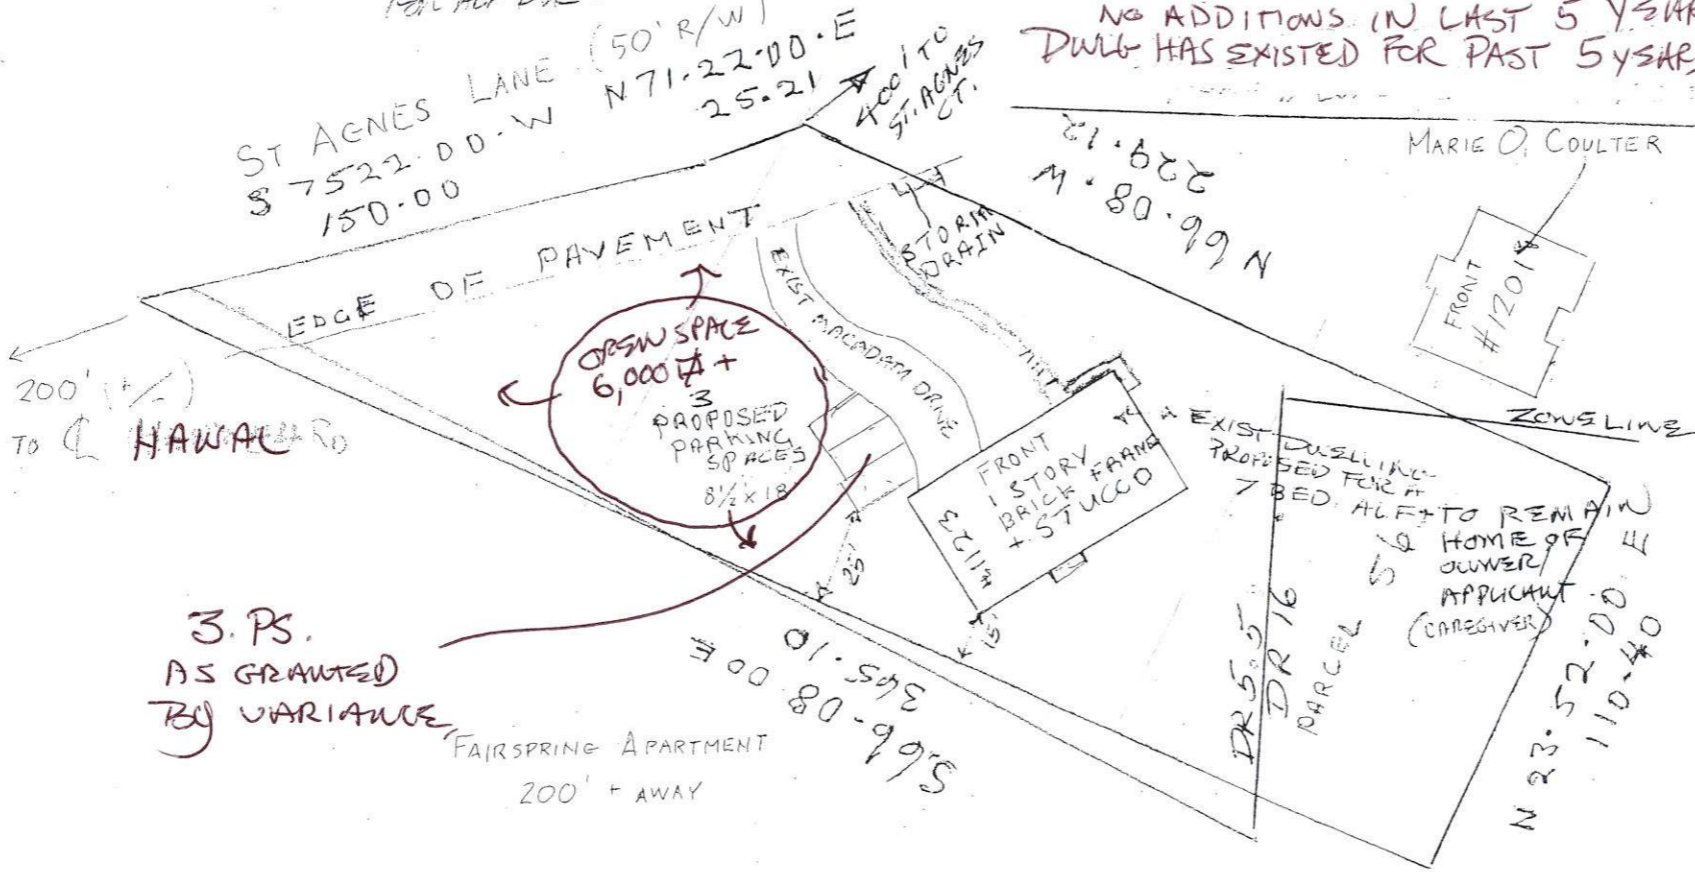 NO ADDITIONS IN LAST 5 YEAR
DWLG HAS EXISTED FOR PAST 5 YEARS
ST AGNES LANE (50' R/W)
S 7522.00.W
150.00
N 71.22.00.E
25.21
400' TO
ST. AGNES
CT.
N 66.08.W
229.12
MARIE O. COULTER
FRONT
#1201
EDGE OF PAVEMENT
STORM
DRAIN
EXIST MACADAM DRIVE
OPEN SPACE
6,000 +
3
PROPOSED
PARKING
SPACES
8½ x 18
200' (+/-)
TO ℄ HAWAL RD
FRONT
1 STORY
BRICK FRAME
+ STUCCO
#1123
25'
15'
ZONE LINE
EXIST DWELLING
PROPOSED FOR A
7 BED ALF + TO REMAIN
HOME OF
OWNER/
APPLICANT
(CAREGIVER)
DR 5.5
DR 16
PARCEL 56
N 23.52.00 E
110.40
3. PS.
AS GRANTED
BY VARIANCE
S66.08.00E
345.10
FAIRSPRING APARTMENT
200' + AWAY